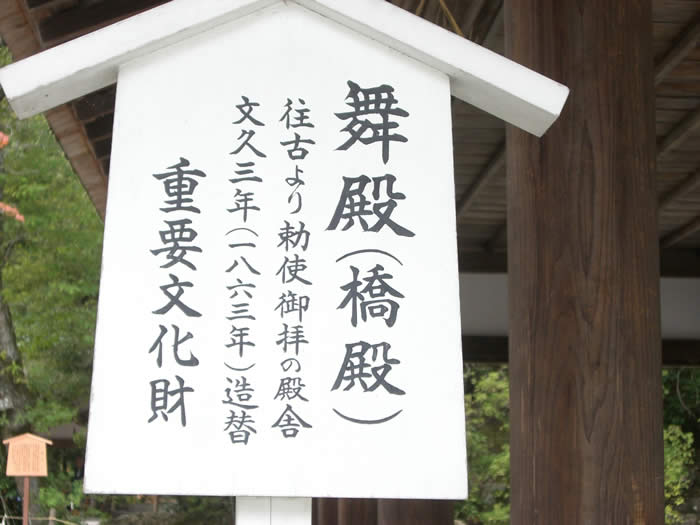 舞殿(橋殿)
往古より勅使御拝の殿舎
文久三年(一八六三年)造替
重要文化財